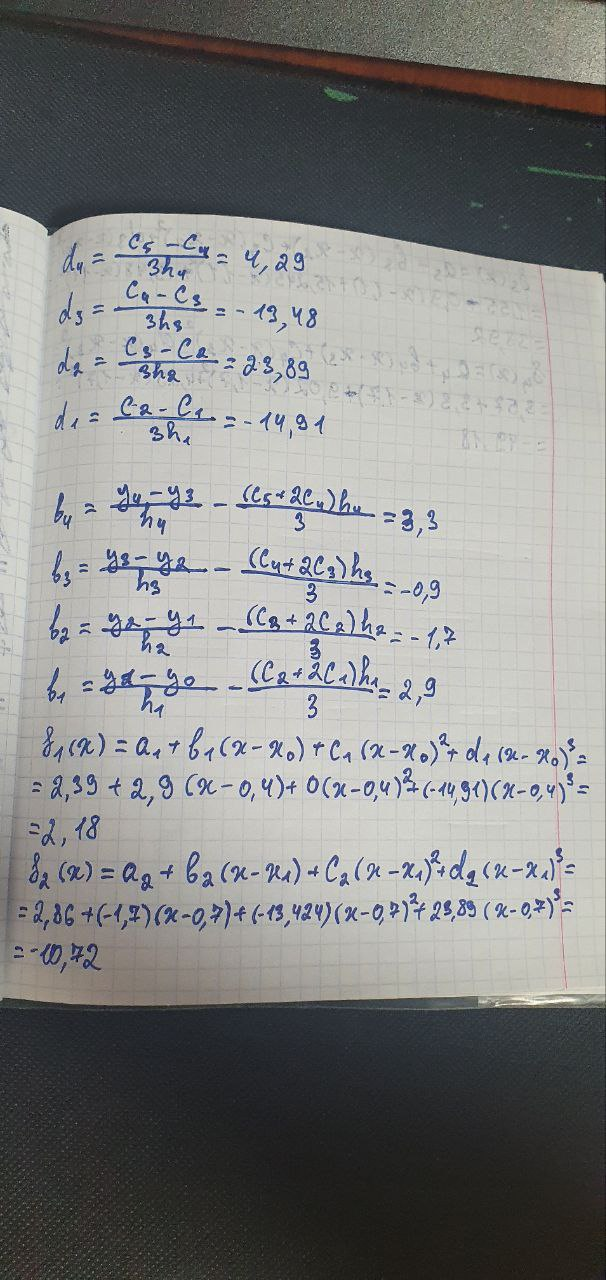 d₄ = (C₅ - C₄)/(3h₄) = 4,29
d₃ = (C₄ - C₃)/(3h₃) = -13,48
d₂ = (C₃ - C₂)/(3h₂) = 23,89
d₁ = (C₂ - C₁)/(3h₁) = -14,91
b₄ = (y₄ - y₃)/h₄ - ((C₅ + 2C₄)h₄)/3 = 3,3
b₃ = (y₃ - y₂)/h₃ - ((C₄ + 2C₃)h₃)/3 = -0,9
b₂ = (y₂ - y₁)/h₂ - ((C₃ + 2C₂)h₂)/3 = -1,7
b₁ = (y₁ - y₀)/h₁ - ((C₂ + 2C₁)h₁)/3 = 2,9
S₁(x) = a₁ + b₁(x - x₀) + C₁(x - x₀)² + d₁(x - x₀)³ =
= 2,39 + 2,9(x - 0,4) + 0(x - 0,4)² + (-14,91)(x - 0,4)³ =
= 2,18
S₂(x) = a₂ + b₂(x - x₁) + C₂(x - x₁)² + d₂(x - x₁)³ =
= 2,86 + (-1,7)(x - 0,7) + (-13,424)(x - 0,7)² + 23,89(x - 0,7)³ =
= -10,72